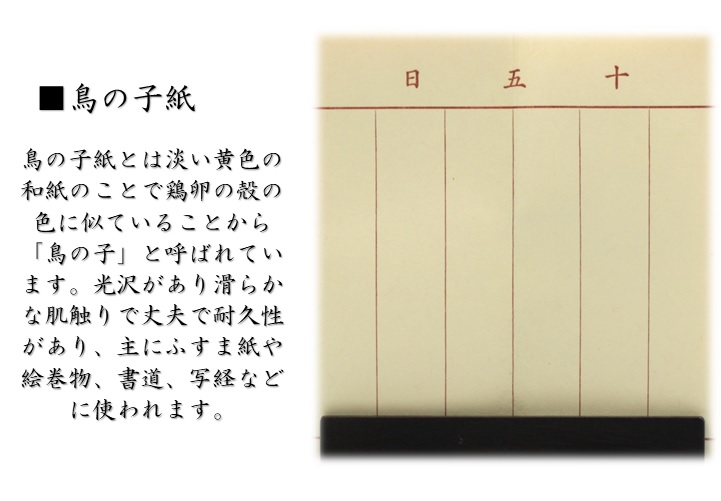 ■鳥の子紙
鳥の子紙とは淡い黄色の
和紙のことで鶏卵の殻の
色に似ていることから
「鳥の子」と呼ばれてい
ます。光沢があり滑らか
な肌触りで丈夫で耐久性
があり、主にふすま紙や
絵巻物、書道、写経など
に使われます。
日 五 十